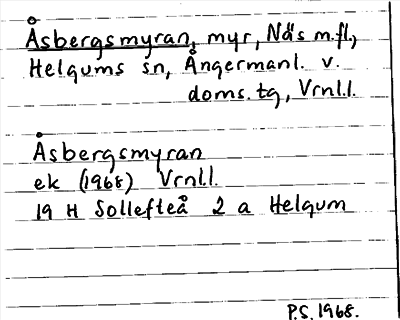 Åsbergsmyran, myr, Näs m.fl.,
Helgums sn, Ångermanl. v.
doms.tg, Vrnl.l.
Åsbergsmyran
ek (1968) Vrnl.l.
19 H Sollefteå 2 a Helgum
P.S. 1968.